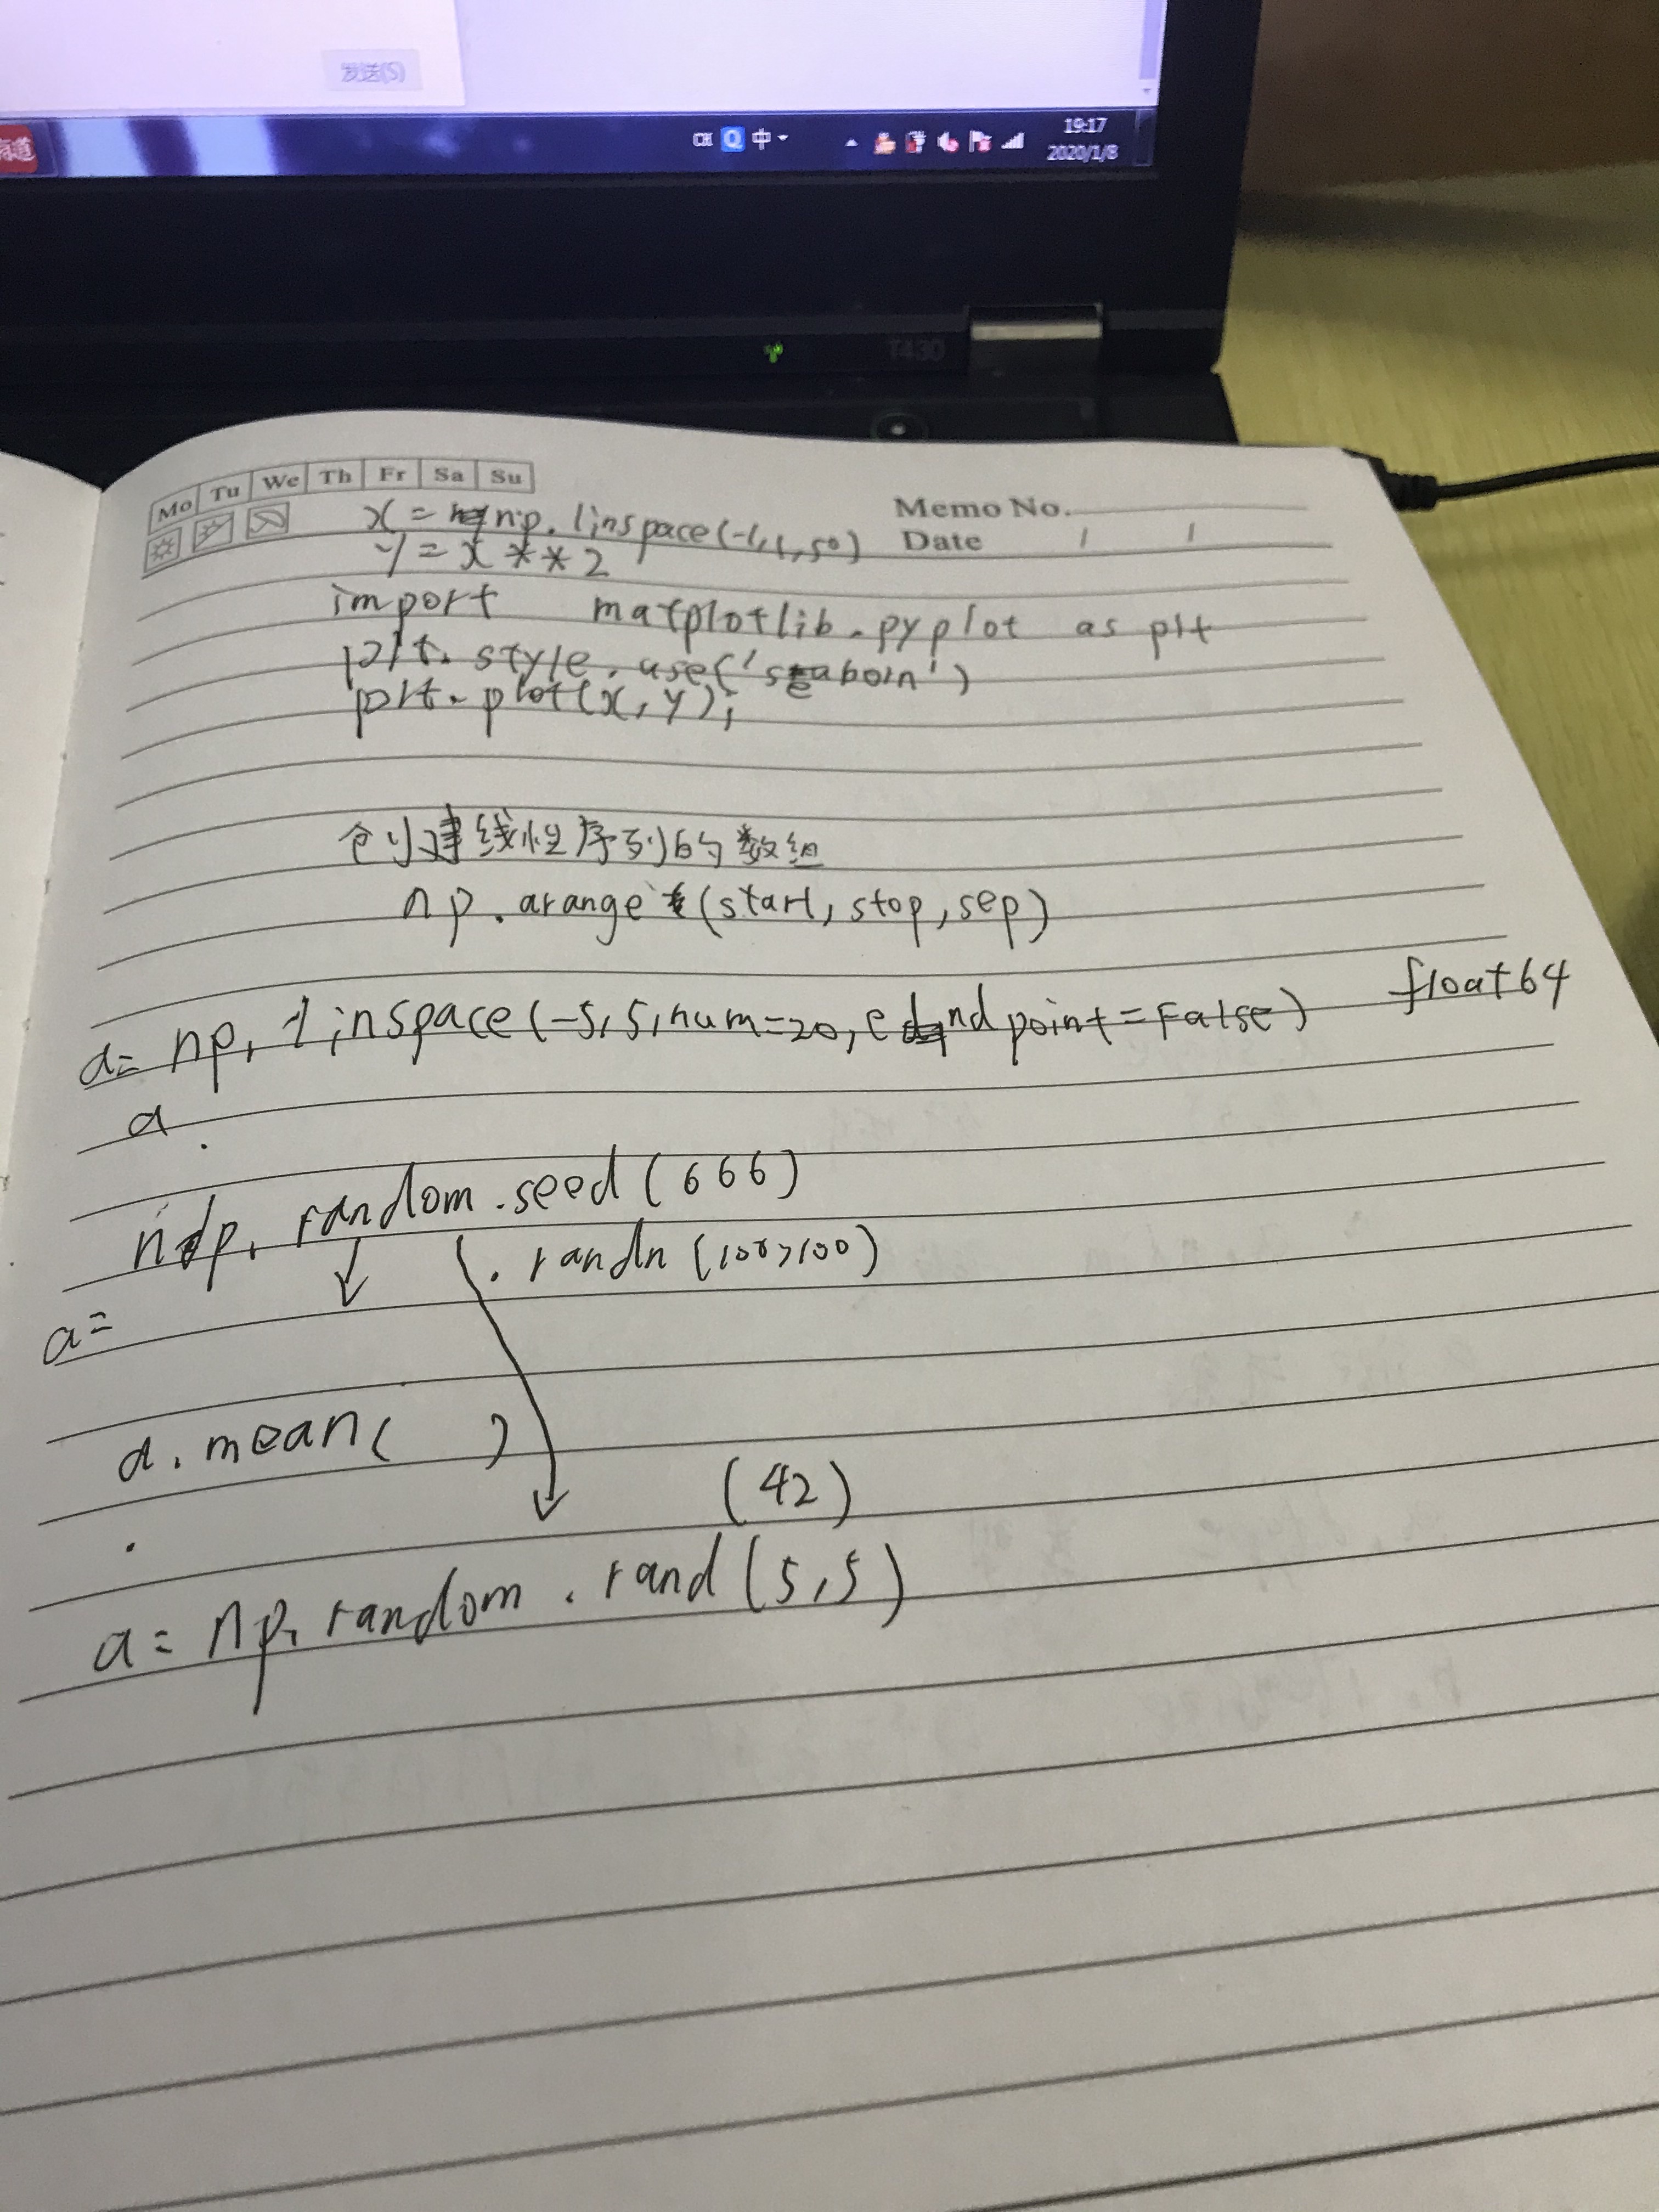 发送(S)
有道
CH Q 中
19:17
2020/1/8
T430
Mo Tu We Th Fr Sa Su
Memo No.
Date / /
x = np.linspace(-1,1,50)
y = x ** 2
import matplotlib.pyplot as plt
plt.style.use('seaborn')
plt.plot(x,y);
创建线性序列的数组
np.arange(start, stop, sep)
a= np.linspace(-5,5,num=20,endpoint=False) float64
a
np.random.seed(666)
.randn(100,100)
a=
a.mean( )
(42)
a= np.random.rand(5,5)